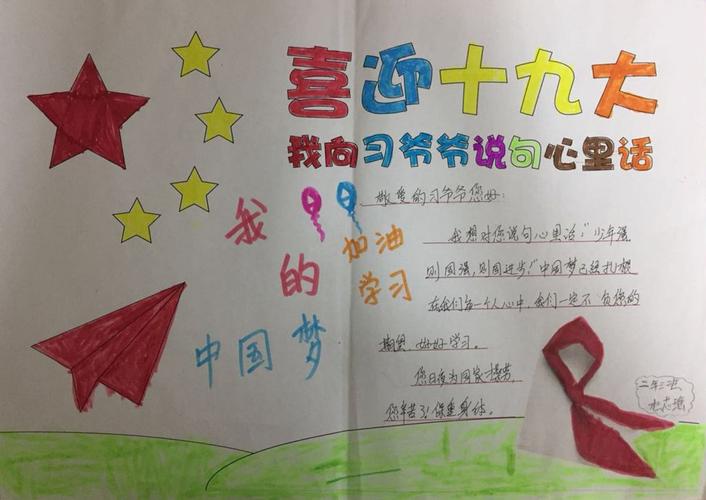 喜迎十九大
我向习爷爷说句心里话
我的中国梦
加油
学习
敬爱的习爷爷您好:
我想对您说句心里话,“少年强
则国强,则国进步!”中国梦已经扎根
在我们每一个人心中,我们一定不负您的
期望,好好学习。
您日夜为国家操劳,
您辛苦了!保重身体。
二年三班